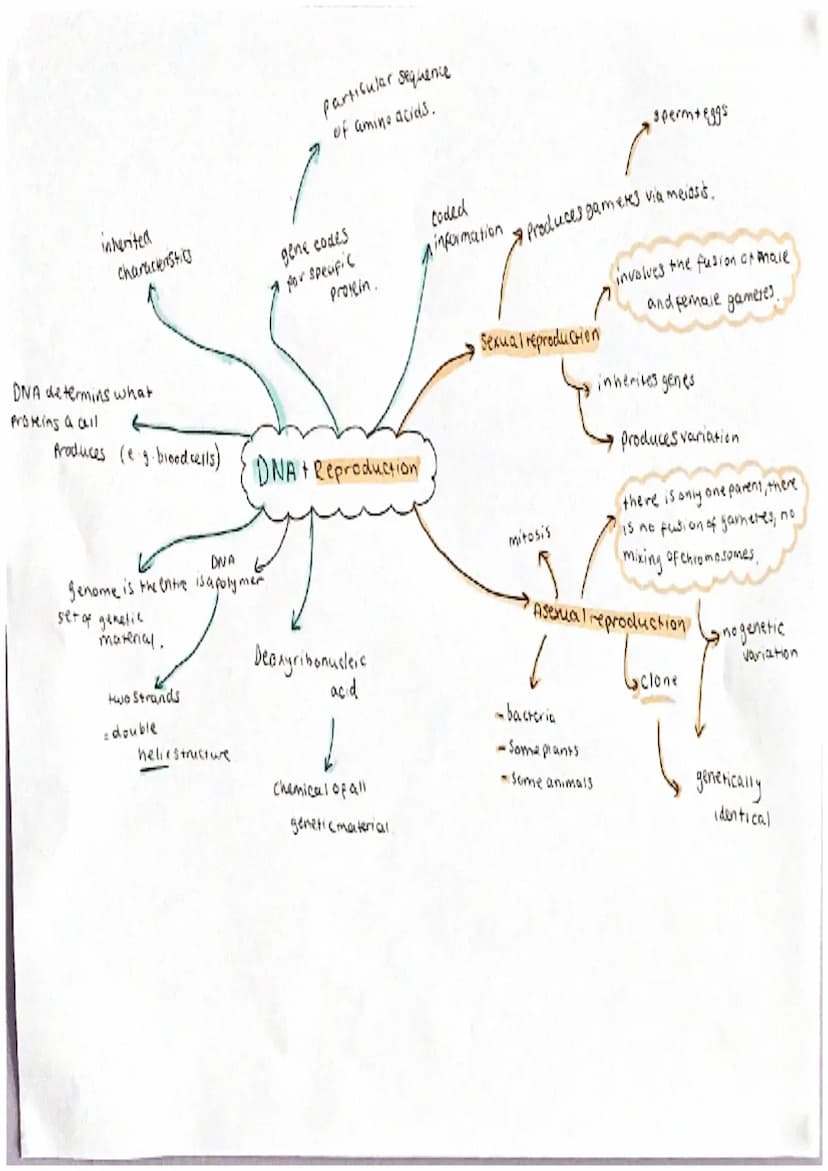 particular sequence
of amino acids.
gene codes
for specific
protein.
inherited
characteristics
coded
information
DNA determins what
proteins a cell
produces (e.g. blood cells)
DNA + Reproduction
genome is the entire
set of genetic
material.
DNA
is a polymer
two strands
= double
helix structure
Deoxyribonucleic
acid
Chemical of all
genetic material
Sexual reproduction
produces gametes via meiosis.
sperm + eggs
involves the fusion of male
and female gametes.
inherites genes
produces variation
Asexual reproduction
mitosis
there is only one parent, there
is no fusion of gametes, no
mixing of chromosomes.
no genetic
variation
clone
genetically
identical
- bacteria
- Some plants
- Some animals